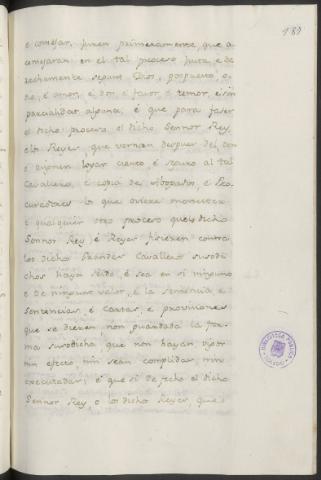 189
e comejar, juren primeramente, que a
comejaran en el tal proceso justa, e de
rechamente segunt Dios, pospuesto, o
dio, é amor, e don, é favor, é temor, e sin
parcialidat alguna, é que para faser
el dicho proceso, el dicho Sennor Rey,
e los Reyes que vernan despues del, den
e asignen logar cierto, é seguro al tal
Cavallero, é copia de Abogados, e Pro
curadores lo que oviere menester
e qualquier otro proceso quel dicho
Sennor Rey, é Reyes fisieren contra
los dicho Grandes Cavalleros susodi
chos haya sido, é sea en si ninguno
e de ningunt valor, é la sentencia e
Sentencias, é Cartas, e provisiones
que se dieren non guardada la for
ma susodicha que non hayan vigor
nin efecto, nin sean complidas, nin
executadas, é que si de fecho el dicho
Sennor Rey, o los dicho Reyes que
BIBLIOTECA PUBLICA
TOLEDO